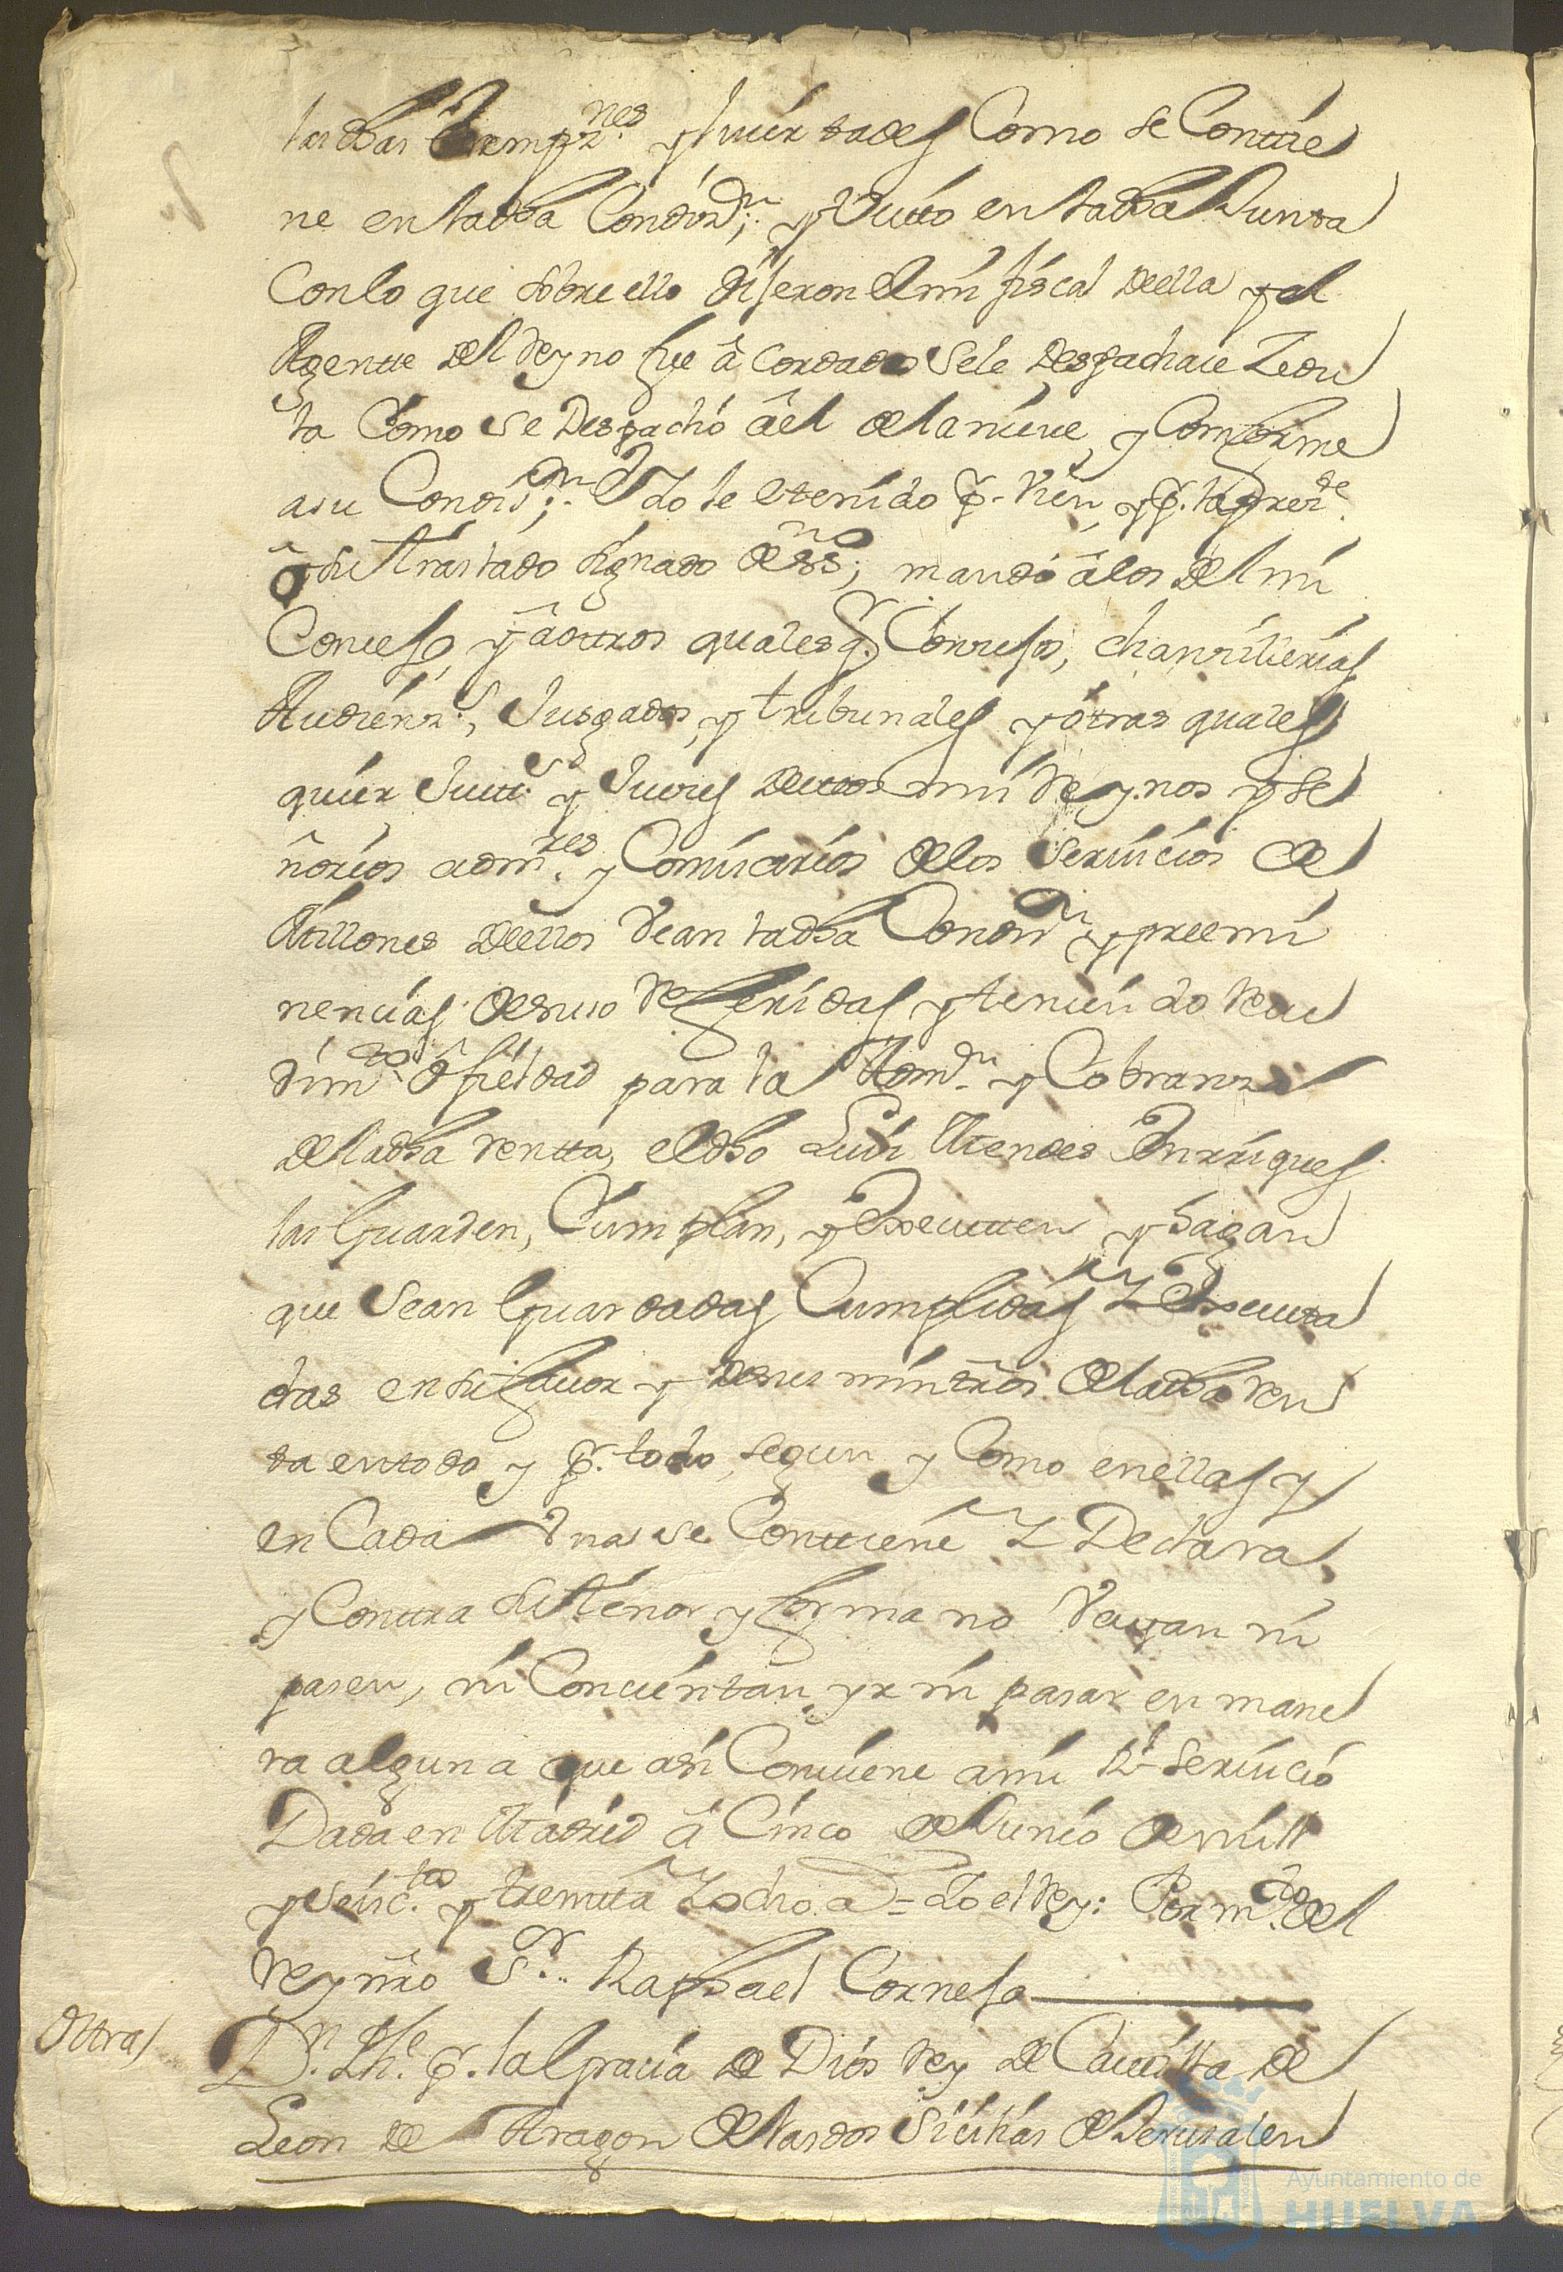 las dhas Exempz.nes y livertades Como se Contie
ne en la dha Condiz.on; y Visto en la dha Junta
Con lo que sobre ello dijeron el mi fiscal de ella y el
Agente del Reyno fue âcordado se le despachase Zedu
la Como se Despachó âel de la nieue, y Conforme
a su Condiz.on Y Yo le e tenido p.r vien, y p.r la prez.te
ô su traslado signado de ss.no; mando â los del mi
Consejo, y â otros quales q.r Consejos, chanzillerias
Audienz.s, Jusgados, y tribunales y otras quales
quier Justi.s y Jueses de estos mis Reynos y se
ñorios adm.res y Comisarios de los seruicios de
Millones de ellos Vean la dha Condiz.on y preemi
nencias de suso Referidas y teniendo Recu
dim.to de fieldad para la Adm.on y Cobranza
de la dha rentta, el dho Luis Mendes Enrriques
las Guarden, Cumplan, y Executten y hagan
que sean Guardadas Cumplidas Y Executa
das en su fauor y de sus minstros de la dha Ren
ta en todo y p.r todo, segun y Como en ellas y
en Cada Vna se Conttiene Y Declara,
y Contra su tenor y forma no Vayan ni
pasen, ni Concientan yr ni pasar en mane
ra alguna que asi Conuiene a mi R.l seruicio
Dada en Madrid â Cinco de Junio de mill
y seisc.tos y treinta Y ocho a = Yo el Rey: Por m.do del
Rey nro S.r Raphael Cornejo
Ottra
D.n Phe. p.r la Gracia de Dios Rey de Castilla de
Leon de Aragon de las dos Sicilias de Jerusalen
Ayuntamiento de
HUELVA